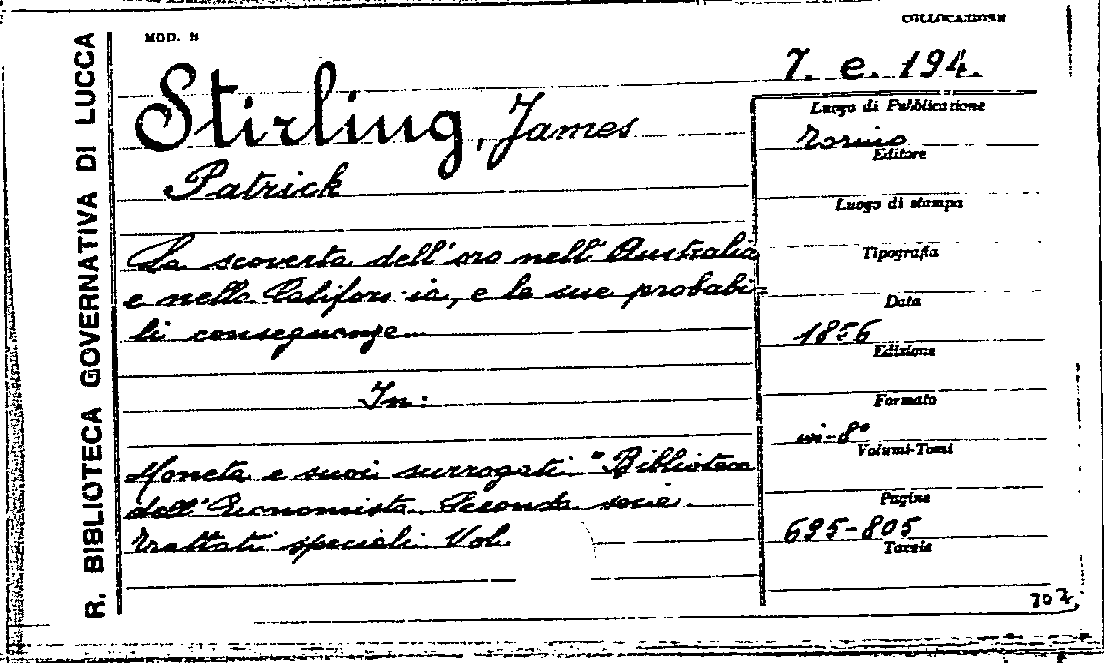 R. BIBLIOTECA GOVERNATIVA DI LUCCA
MOD. B
COLLOCAZIONE
7. e. 194.
Stirling, James
Patrick
La scoverta dell'oro nell'Australia
e nella California, e le sue probabi=
li conseguenze
In:
Moneta e suoi surrogati "Biblioteca
dell'Economista. Seconda serie
trattati speciali. Vol.
Luogo di Pubblicazione
Torino
Editore
Luogo di stampa
Tipografia
Data
1856
Edizione
Formato
in-8°
Volumi-Tomi
Pagine
695-805
Tavole